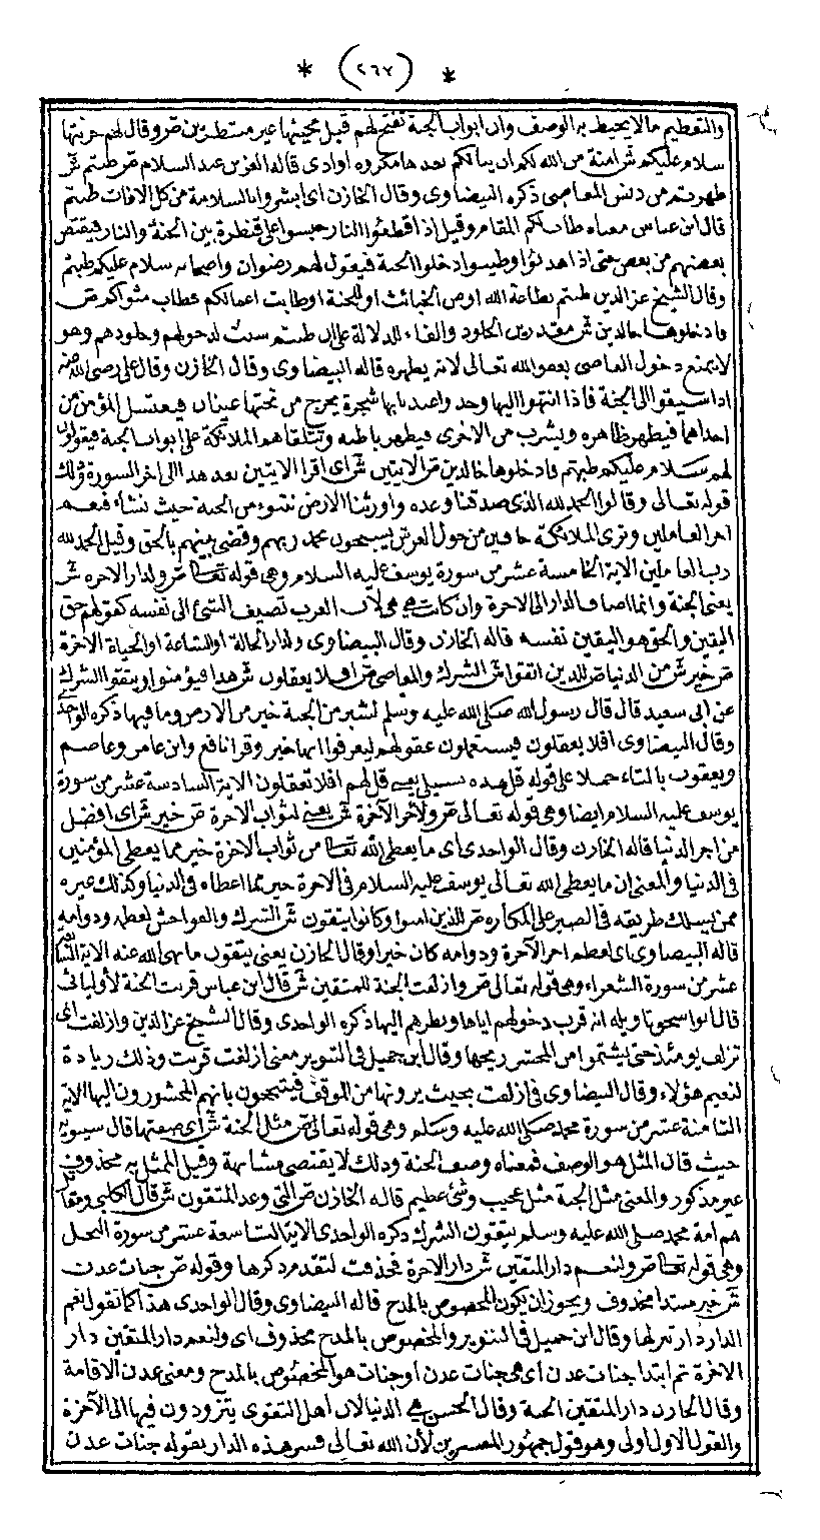 * (٢٦٧) *
والتعظيم ما لا يحيط به الوصف وان ابواب الجنة تفتح لهم قبل مجيئها غير منتظرين ص وقال لهم خزنتها
سلام عليكم ش امنة من الله لكم ان ينالكم بعدها مكروه او اذى قاله العز بن عبد السلام ص طبتم ش
طهرتم من دنس المعاصى ذكره البيضاوى وقال الخازن اى ابشروا بالسلامة من كل الافات طبتم
قال ابن عباس معناه طاب لكم المقام وقيل اذا قطعوا النار حبسوا على قنطرة بين الجنة والنار فيقتص
بعضهم من بعض حتى اذا هذبوا وطيبوا دخلوا الجنة فيقول لهم رضوان واصحابه سلام عليكم طبتم
وقال الشيخ عز الدين طبتم بطاعة الله او من الخبائث او للجنة او طابت اعمالكم فطاب مثواكم ص
فادخلوها خالدين ش مقدرين الخلود والفاء للدلالة على ان طبتم سبب لدخولهم وخلودهم وهو
لا يمنع دخول العاصى بعفو الله تعالى لانه يطهره قاله البيضاوى وقال الخازن وقال على رضى الله عنه
اذا سيقوا الى الجنة فاذا انتهوا اليها وجد واعند بابها شجرة يخرج من تحتها عينان فيغتسل المؤمن من
احداهما فيطهر ظاهره ويشرب من الاخرى فيطهر باطنه وتتلقاهم الملائكة على ابواب الجنة فيقولون
لهم سلام عليكم طبتم فادخلوها خالدين ص الايتين ش اى اقرا الايتين بعد هذا الى اخر السورة وذلك
قوله تعالى وقالوا الحمد لله الذى صدقنا وعده واورثنا الارض نتبوء من الجنة حيث نشاء فنعم
اجر العاملين وترى الملائكة حافين من حول العرش يسبحون بحمد ربهم وقضى بينهم بالحق وقيل الحمد لله
رب العالمين الاية الخامسة عشر من سورة يوسف عليه السلام وهى قوله تعالى ص ولدار الاخرة ش
يعنى الجنة وانما اضاف الدار الى الاخرة وان كانت هى هى لان العرب تضيف الشئ الى نفسه كقولهم حق
اليقين والحق هو اليقين نفسه قاله الخازن وقال البيضاوى ولدار الحالة او الساعة او الحياة الاخرة
ص خير ش من الدنيا ص للذين اتقوا ش الشرك والمعاصى ص افلا يعقلون ش هذا فيؤمنوا ويتقوا الشرك
عن ابى سعيد قال قال رسول الله صلى الله عليه وسلم لشبر من الجنة خير من الارض وما فيها ذكره الواحدى
وقال البيضاوى افلا يعقلون فيستعملون عقولهم ليعرفوا انها خير وقرا نافع وابن عامر وعاصم
ويعقوب بالتاء حملا على قوله قل هذه سبيلى يعنى قل لهم افلا تعقلون الاية السادسة عشر من سورة
يوسف عليه السلام ايضا وهى قوله تعالى ص ولاجر الآخرة ش يعنى لثواب الاخرة ص خير ش اى افضل
من اجر الدنيا قاله الخازن وقال الواحدى اى ما يعطى الله تعالى من ثواب الاخرة خير مما يعطى المؤمنين
فى الدنيا والمعنى ان ما يعطى الله تعالى يوسف عليه السلام فى الاخرة خير مما اعطاه فى الدنيا وكذلك غيره
ممن يسلك طريقه فى الصبر على المكاره ص للذين امنوا وكانوا يتقون ش الشرك والفواحش لعظمه ودوامه
قاله البيضاوى اى اعظم اجر الآخرة ودوامه كان خيرا وقال الخازن يعنى يتقون ما نهى الله عنه الاية السابعة
عشر من سورة الشعراء وهى قوله تعالى ص وازلفت الجنة للمتقين ش قال ابن عباس قربت الجنة لأوليائى
قال ابو اسحق تاويله انه قرب دخولهم اياها ونظرهم اليها ذكره الواحدى وقال الشيخ عز الدين وازلفت اى
تزلف يومئذ حتى يشتموا من المحشر ريحها وقال ابن جميل فى التنوير معنى ازلفت قربت وذلك زيادة
لنعيم هؤلاء وقال البيضاوى فى ازلفت بحيث يرونها من الموقف فيتبجحون بانهم المحشورون اليها الاية
الثامنة عشر من سورة محمد صلى الله عليه وسلم وهى قوله تعالى ص مثل الجنة ش اى صفتها قال سيبويه
حيث قال المثل هو الوصف فمعناه وصف الجنة وذلك لا يقتضى مشابهة وقيل الممثل به محذوف
غير مذكور والمعنى مثل الجنة مثل عجيب وشئ عظيم قاله الخازن ص التى وعد المتقون ش قال الكلبى ومقاتل
هم امة محمد صلى الله عليه وسلم يتقون الشرك ذكره الواحدى الاية التاسعة عشر من سورة النحل
وهى قوله تعالى ص ولنعم دار المتقين ش دار الاخرة فحذفت لتقدم ذكرها وقوله ص جنات عدن
ش خبر مبتدا محذوف ويجوز ان يكون المخصوص بالمدح قاله البيضاوى وقال الواحدى هذا كما تقول نعم
الدار دار تنزلها وقال ابن جميل فى التنوير والمخصوص بالمدح محذوف اى ولنعم دار المتقين دار
الاخرة ثم ابتدا جنات عدن اى هى جنات عدن او جنات هو المخصوص بالمدح ومعنى عدن الاقامة
وقال الخازن دار المتقين الجنة وقال الحسن هى الدنيا لان اهل التقوى يتزودون فيها الى الآخرة
والقول الاول اولى وهو قول جمهور المفسرين لأن الله تعالى فسر هذه الدار بقوله جنات عدن